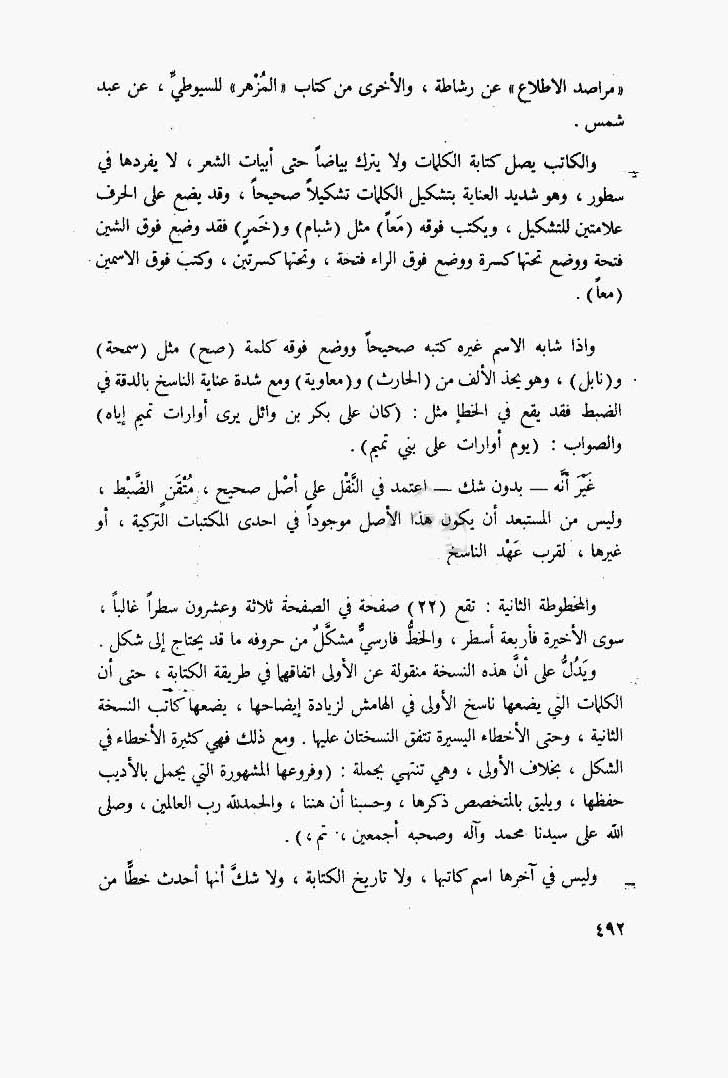 «مراصد الاطلاع» عن رشاطة ، والأخرى من كتاب «المُزْهر» للسيوطيِّ ، عن عبد
شمس .
والكاتب يصل كتابة الكلمات ولا يترك بياضاً حتى أبيات الشعر ، لا يفردها في
سطور ، وهو شديد العناية بتشكيل الكلمات تشكيلاً صحيحاً ، وقد يضع على الحرف
علامتين للتشكيل ، ويكتب فوقه (مَعاً) مثل (شبام) و(خَمرٍ) فقد وضع فوق الشين
فتحة ووضع تحتها كسرة ووضع فوق الراء فتحة ، وتحتها كسرتين ، وكتب فوق الاسمين
(معاً) .
واذا شابه الاسم غيره كتبه صحيحاً ووضع فوقه كلمة (صح) مثل (سمحة)
و(نابل) ، وهو يحذ الألف من (الحارث) و(معاوية) ومع شدة عناية الناسخ بالدقة في
الضبط فقد يقع في الخطإ مثل : (كان على بكر بن وائل يرى أوارات تميم إياه)
والصواب : (يوم أوارات على بني تميم) .
غَيْرَ أنَّه — بدون شك — اعتمد في النَّقْل على أصْل صحيح ، مُتْقَن الضَّبْط ،
وليس من المستبعد أن يكون هذا الأصل موجوداً في احدى المكتبات التركية ، أو
غيرها ، لقرب عَهْد الناسخ
والمخطوطة الثانية : تقع (٢٢) صفحة في الصفحة ثلاثة وعشرون سطراً غالباً ،
سوى الأخيرة فأربعة أسطر ، والخطُّ فارسيٌّ مشكَّلٌ من حروفه ما قد يحتاج إلى شكل .
ويَدُلُّ على أنَّ هذه النسخة منقولة عن الأولى اتفاقهما في طريقة الكتابة ، حتى أن
الكلمات التي يضعها ناسخ الأولى في الهامش لزيادة إيضاحها ، يضعها كاتب النسخة
الثانية ، وحتى الأخطاء اليسيرة تتفق النسختان عليها . ومع ذلك فهي كثيرة الأخطاء في
الشكل ، بخلاف الأولى ، وهي تنتهي بجملة : (وفروعها المشهورة التي يجمل بالأديب
حفظها ، ويليق بالمتخصص ذكرها ، وحسبنا أن هننا ، والحمدلله رب العالمين ، وصلى
الله على سيدنا محمد وآله وصحبه أجمعين ، تم ،) .
وليس في آخرها اسم كاتبها ، ولا تاريخ الكتابة ، ولا شكَّ أنها أحدث خطًّا من
٤٩٢